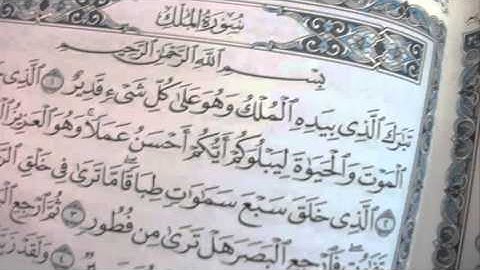 سُورَةُ المُلْكِ
بِسْمِ ٱللَّهِ ٱلرَّحْمَٰنِ ٱلرَّحِيمِ
تَبَٰرَكَ ٱلَّذِى بِيَدِهِ ٱلْمُلْكُ وَهُوَ عَلَىٰ كُلِّ شَىْءٍ قَدِيرٌ ١ ٱلَّذِى
ٱلْمَوْتَ وَٱلْحَيَوٰةَ لِيَبْلُوَكُمْ أَيُّكُمْ أَحْسَنُ عَمَلًا ۚ وَهُوَ ٱلْعَزِيزُ
٢ ٱلَّذِى خَلَقَ سَبْعَ سَمَٰوَٰتٍ طِبَاقًا ۖ مَّا تَرَىٰ فِى خَلْقِ
فَٱرْجِعِ ٱلْبَصَرَ هَلْ تَرَىٰ مِن فُطُورٍ ٣ ثُمَّ ٱرْجِعِ
٤ وَلَقَدْ